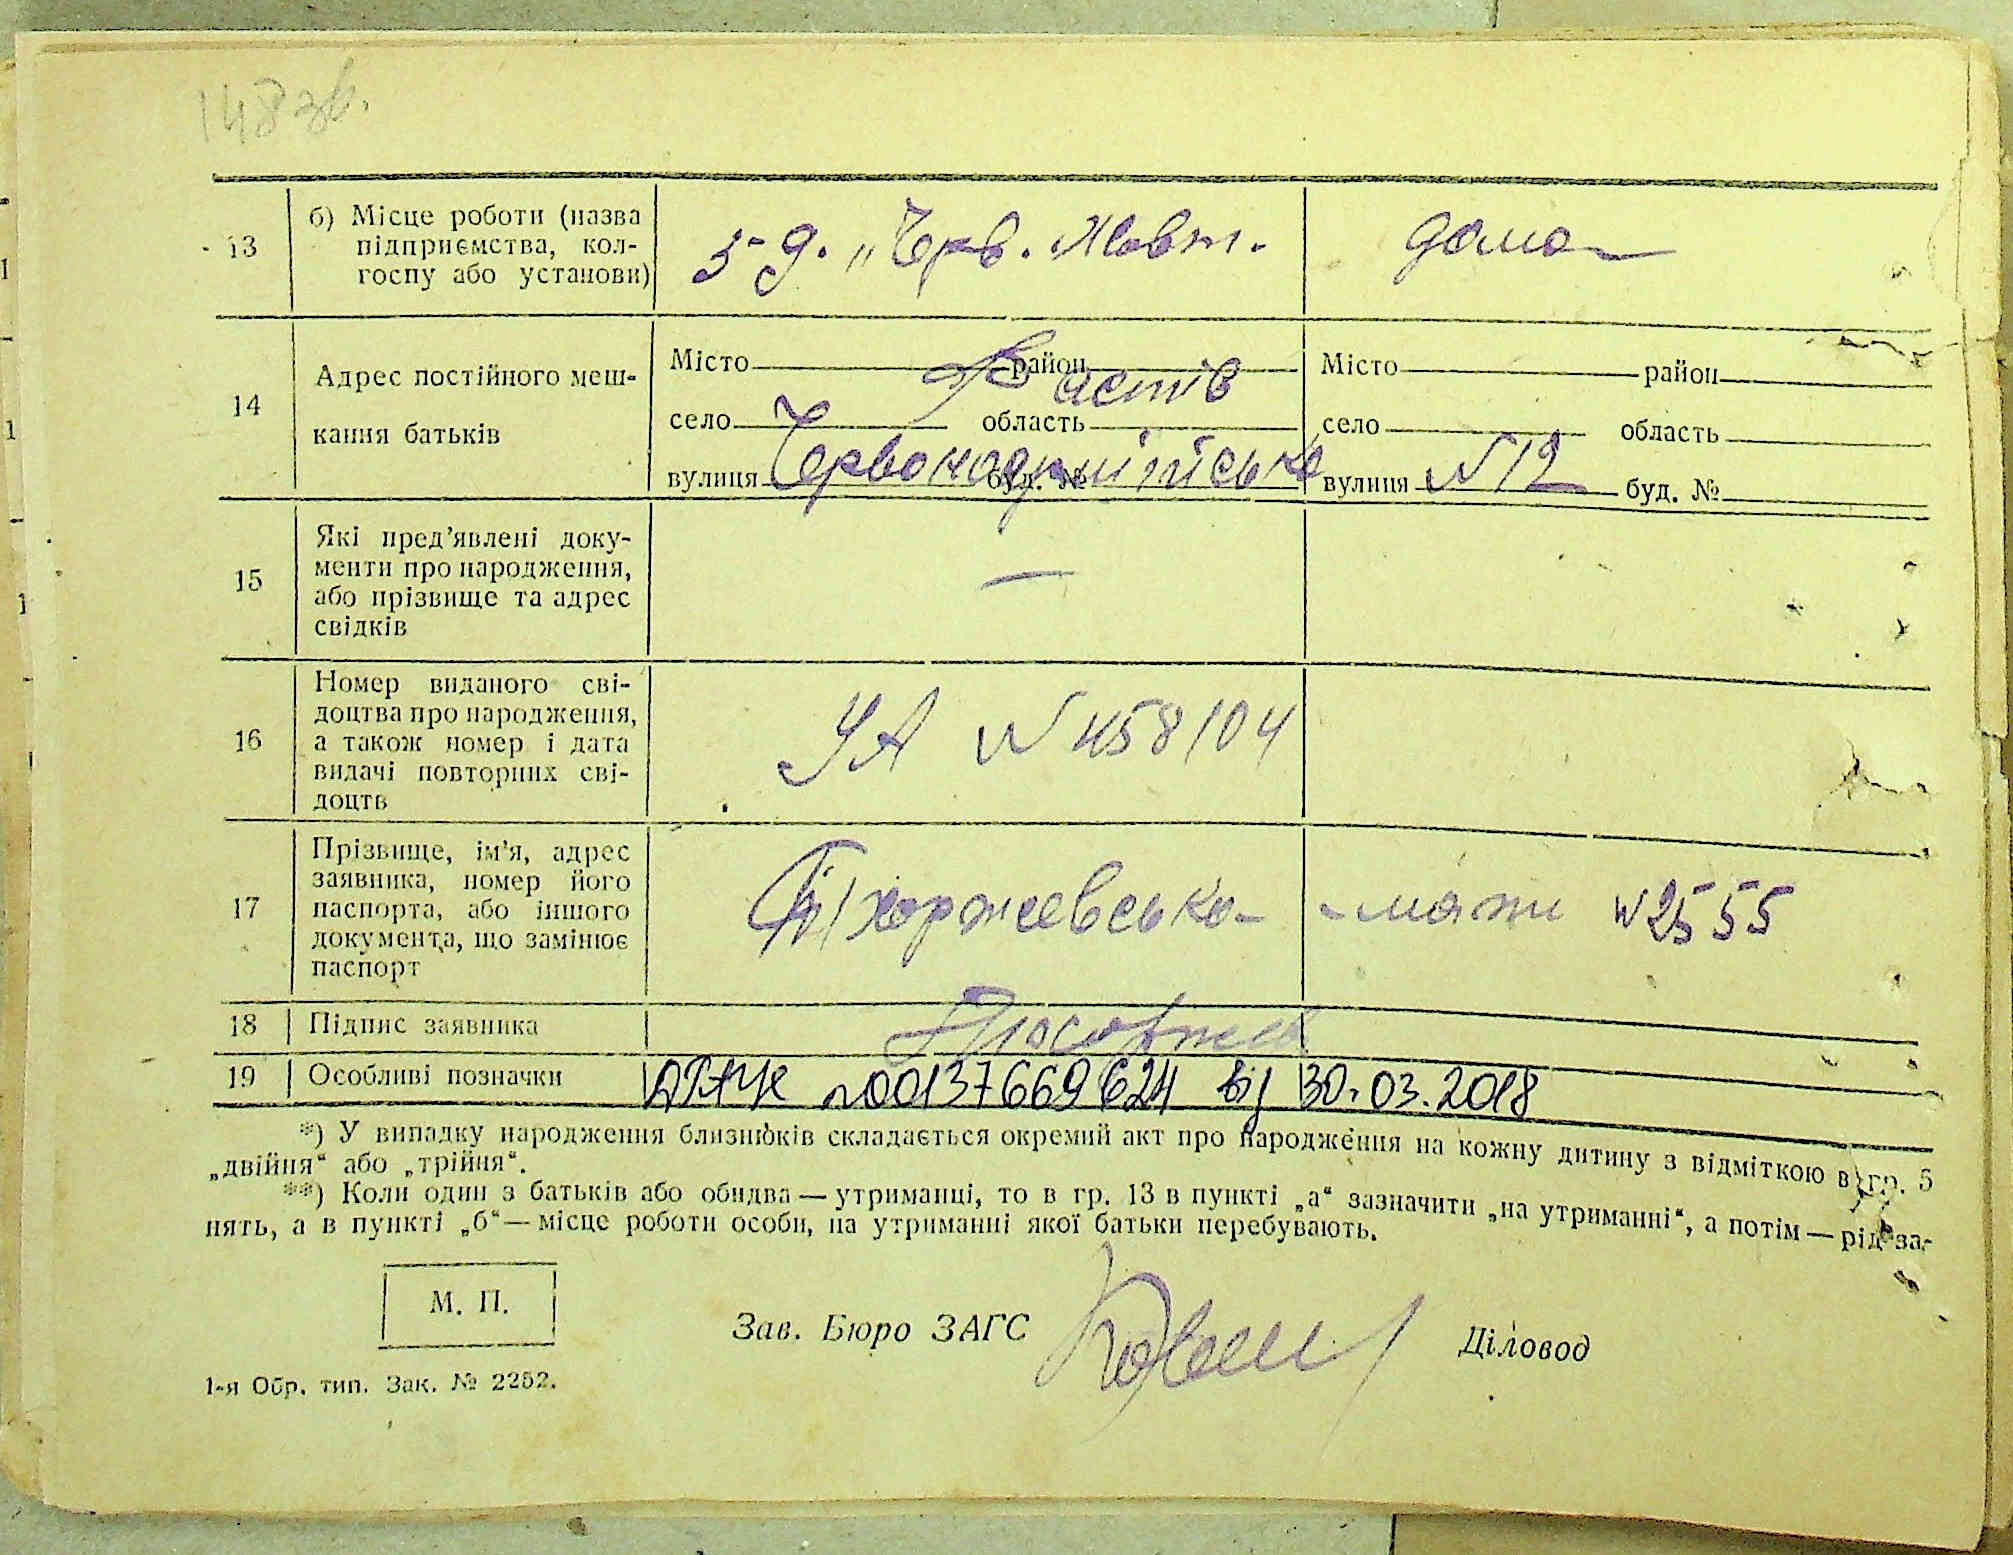 148 зв.
13
б) Місце роботи (назва
підприємства, кол-
госпу або установи)
з-д. „Черв. Жовт.
дома
14
Адрес постійного меш-
кання батьків
Місто район
Фастів
село область
вулиця Червоноармійська буд. №
Місто район
село область
вулиця N 12 буд. №
15
Які пред’явлені доку-
менти про народження,
або прізвище та адрес
свідків
—
16
Номер виданого сві-
доцтва про народження,
а також номер і дата
видачі повторних сві-
доцтв
УА N 458104
17
Прізвище, ім’я, адрес
заявника, номер його
паспорта, або іншого
документа, що замінює
паспорт
Тхоржевська - мати N 2555
18
Підпис заявника
19
Особливі позначки
00137669624 від 30.03.2018
*) У випадку народження близнюків складається окремий акт про народження на кожну дитину з відміткою в гр. 5
„двійня“ або „трійня“.
**) Коли один з батьків або обидва — утриманці, то в гр. 13 в пункті „а“ зазначити „на утриманні“, а потім — рід за-
нять, а в пункті „б“ — місце роботи особи, на утриманні якої батьки перебувають.
М. П.
Зав. Бюро ЗАГС
Діловод
1-я Обр. тип. Зак. № 2252.